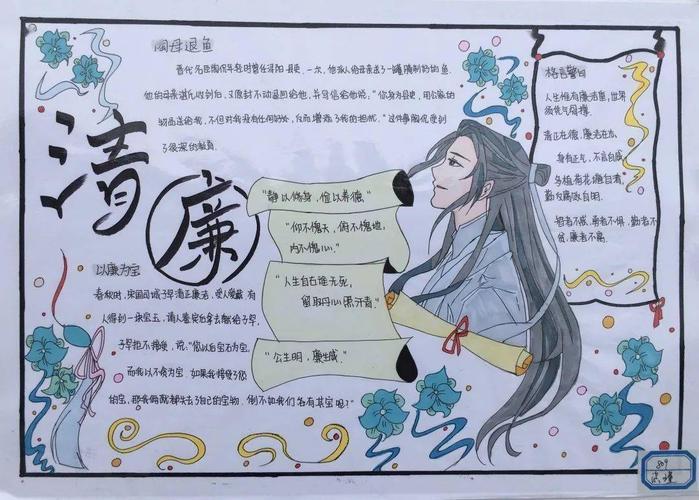 清廉
陶母退鱼
晋代名臣陶侃年轻时曾任浔阳县吏。一次，他派人给母亲送了一罐腌制好的鱼。
他的母亲湛氏收到后，又原封不动退回给他，并写信给他说："你身为县吏，用公家的
物品送给我，不但对我没有任何好处，反而增添了我的担忧。"这件事使陶侃受到
了很深的教育。
"静以修身，俭以养德。"
"仰不愧天，俯不愧地，
内不愧心。"
"人生自古谁无死，
留取丹心照汗青。"
"公生明，廉生威。"
格言警句
人生惟有廉洁重，世界
须凭气骨撑。
清正在德，廉洁在志。
身有正气，不言自威
多植荷花塘自清，
勤反腐政自明。
智者不惑，勇者不惧，勤者不
贫，廉者不腐。
以廉为宝
春秋时，宋国司城子罕清正廉洁，受人爱戴。有
人得到一块宝玉，请人鉴定后拿去献给子罕，
子罕拒不接受，说："您以宝石为宝，
而我以不贪为宝。如果我接受了您
的玉，那我俩就都失去了自己的宝物。倒不如我们各有其宝呢？"
809